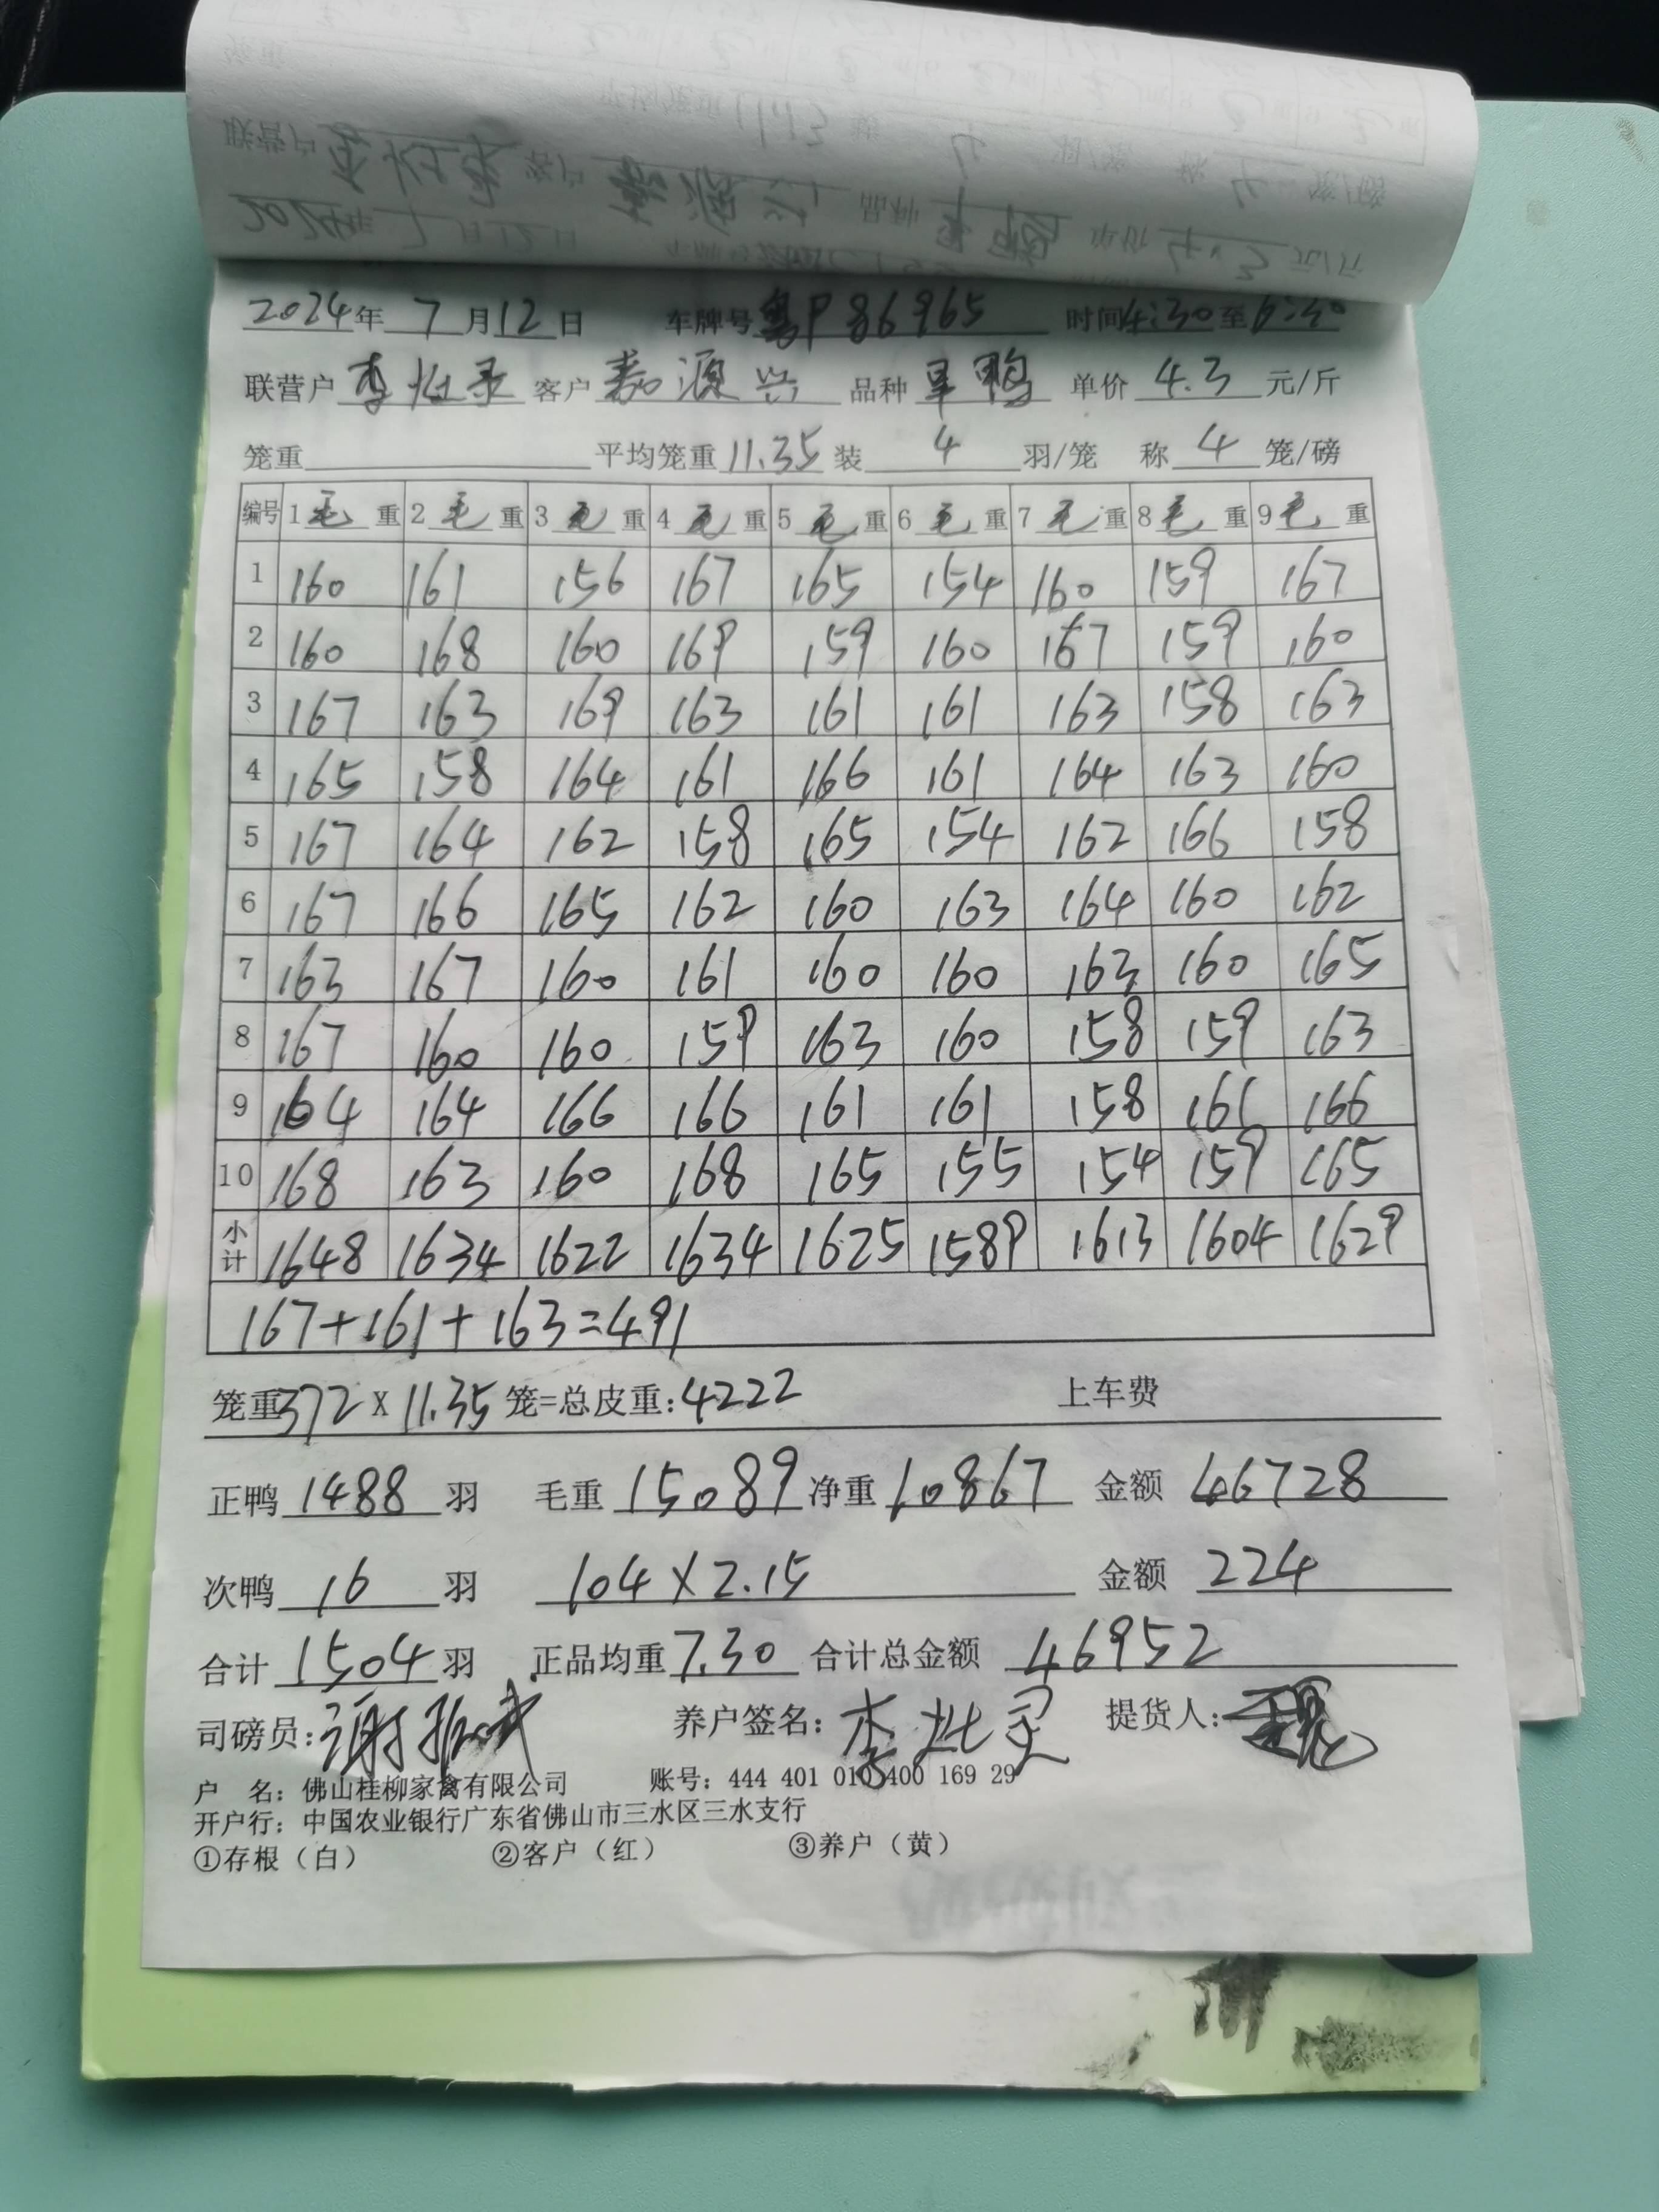 2024年 7月12日 车牌号 粤P86965 时间4:30至6:30
联营户 客户 嘉源兴 品种 旱鸭 单价 4.3 元/斤
笼重 平均笼重 11.35 装 4 羽/笼 称 4 笼/磅
编号 1 毛 重 2 毛 重 3 毛 重 4 毛 重 5 毛 重 6 毛 重 7 毛 重 8 毛 重 9 毛 重
1 160 161 156 167 165 154 160 159 167
2 160 168 160 169 159 160 167 159 160
3 167 163 169 163 161 161 163 158 163
4 165 158 164 161 166 161 164 163 160
5 167 164 162 158 165 154 162 166 158
6 167 166 165 162 160 163 164 160 162
7 163 167 160 161 160 160 163 160 165
8 167 160 160 159 163 160 158 159 163
9 164 164 166 166 161 161 158 161 166
10 168 163 160 168 165 155 154 159 165
小计 1648 1634 1622 1634 1625 1589 1613 1604 1629
167+161+163=491
笼重 372 X 11.35 笼=总皮重: 4222 上车费
正鸭 1488 羽 毛重 15089 净重 10867 金额 46728
次鸭 16 羽 104×2.15 金额 224
合计 1504 羽 正品均重 7.30 合计总金额 46952
司磅员: 养户签名: 提货人:
户 名: 佛山桂柳家禽有限公司 账号: 444 401 010 400 169 29
开户行: 中国农业银行广东省佛山市三水区三水支行
①存根(白) ②客户(红) ③养户(黄)